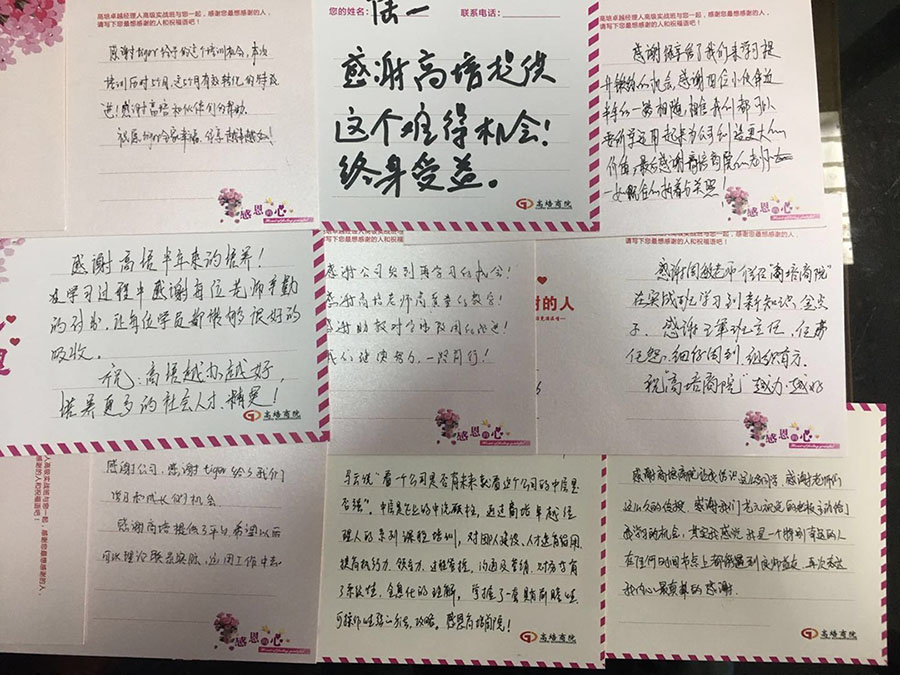 高培卓越经理人高级实战班与您一起，感谢您最想感谢的人，
请写下您最想感谢的人和祝福语吧！
感谢tiger给予的这个培训机会，本次
培训历时5个月，这5个月有较转化的特改
进！感谢高培和伙伴们的帮助。
祝愿tiger全家幸福
感恩的心
您的姓名：
陆一
联系电话：
感谢高培提供
这个难得机会！
终身受益。
高培商院
高培卓越经理人高级实战班与您一起，感谢您最想感谢的人，
请写下您最想感谢的人和祝福语吧！
感谢领导给了我们来学习提
升锻炼的机会，感谢四位小伙伴这
半年的一路相随，相信我们都可以
把所学运用起来为公司创造更大的
价值，最后感谢高培商院的老师
一如既往的执着与关照！
感恩的心
感谢高培半年来的培养！
在学习过程中感谢每位老师辛勤
的付出，让每位学员都能够很好的
吸收。
祝：高培越办越好，
培养更多的社会人才、精英！
高培商院
高培卓越经理人高级实战班与您一起
请写下您最想感谢的人和祝福
感谢公司给到再学习的机会！
感谢高培老师周老师的教会！
感谢助教对学员及团的跟进！
我们继续努力，一路同行！
感恩的心
谢的人
班与您一起，感谢您最想感谢的人，
请写下您最想感谢的人和祝福语吧！
感谢周敏老师信任“高培商院”
在实战班学习到新知识、金点
子、感谢王军班主任，任劳
任怨、细仔周到、组织有方。
祝“高培商院”越办越好
感恩的心
人高级实战班与您一起，感谢您最想感谢的人，
的人和祝福语吧！
感谢公司，感谢tiger给了我们
学习和成长的机会
感谢高培提供了平台，希望以后
可以理论联系实际，运用工作中去。
感恩的心
马云说“看一个公司是否有未来就看这个公司的中层是
否强”。中层是企业的中流砥柱，通过高培卓越经
理人的系列课程培训，对团人建设、人才选育留用、
提高执行力、领导力、过程管控、沟通及营销、对方方有
了系统性、全息化的理解，掌握了一套具有前瞻性、
可操作性强的方法、攻略。感恩高培商院！
感谢高培商院让我结识这么多同学，感谢老师们
这么久的传授，感谢我们老元祝定的老板主动给了
我学习的机会，其实我感觉我是一个特别有运的人
在任何时间节点上都能遇到良师益友，再次表达
我内心最真挚的感谢。
高培商院